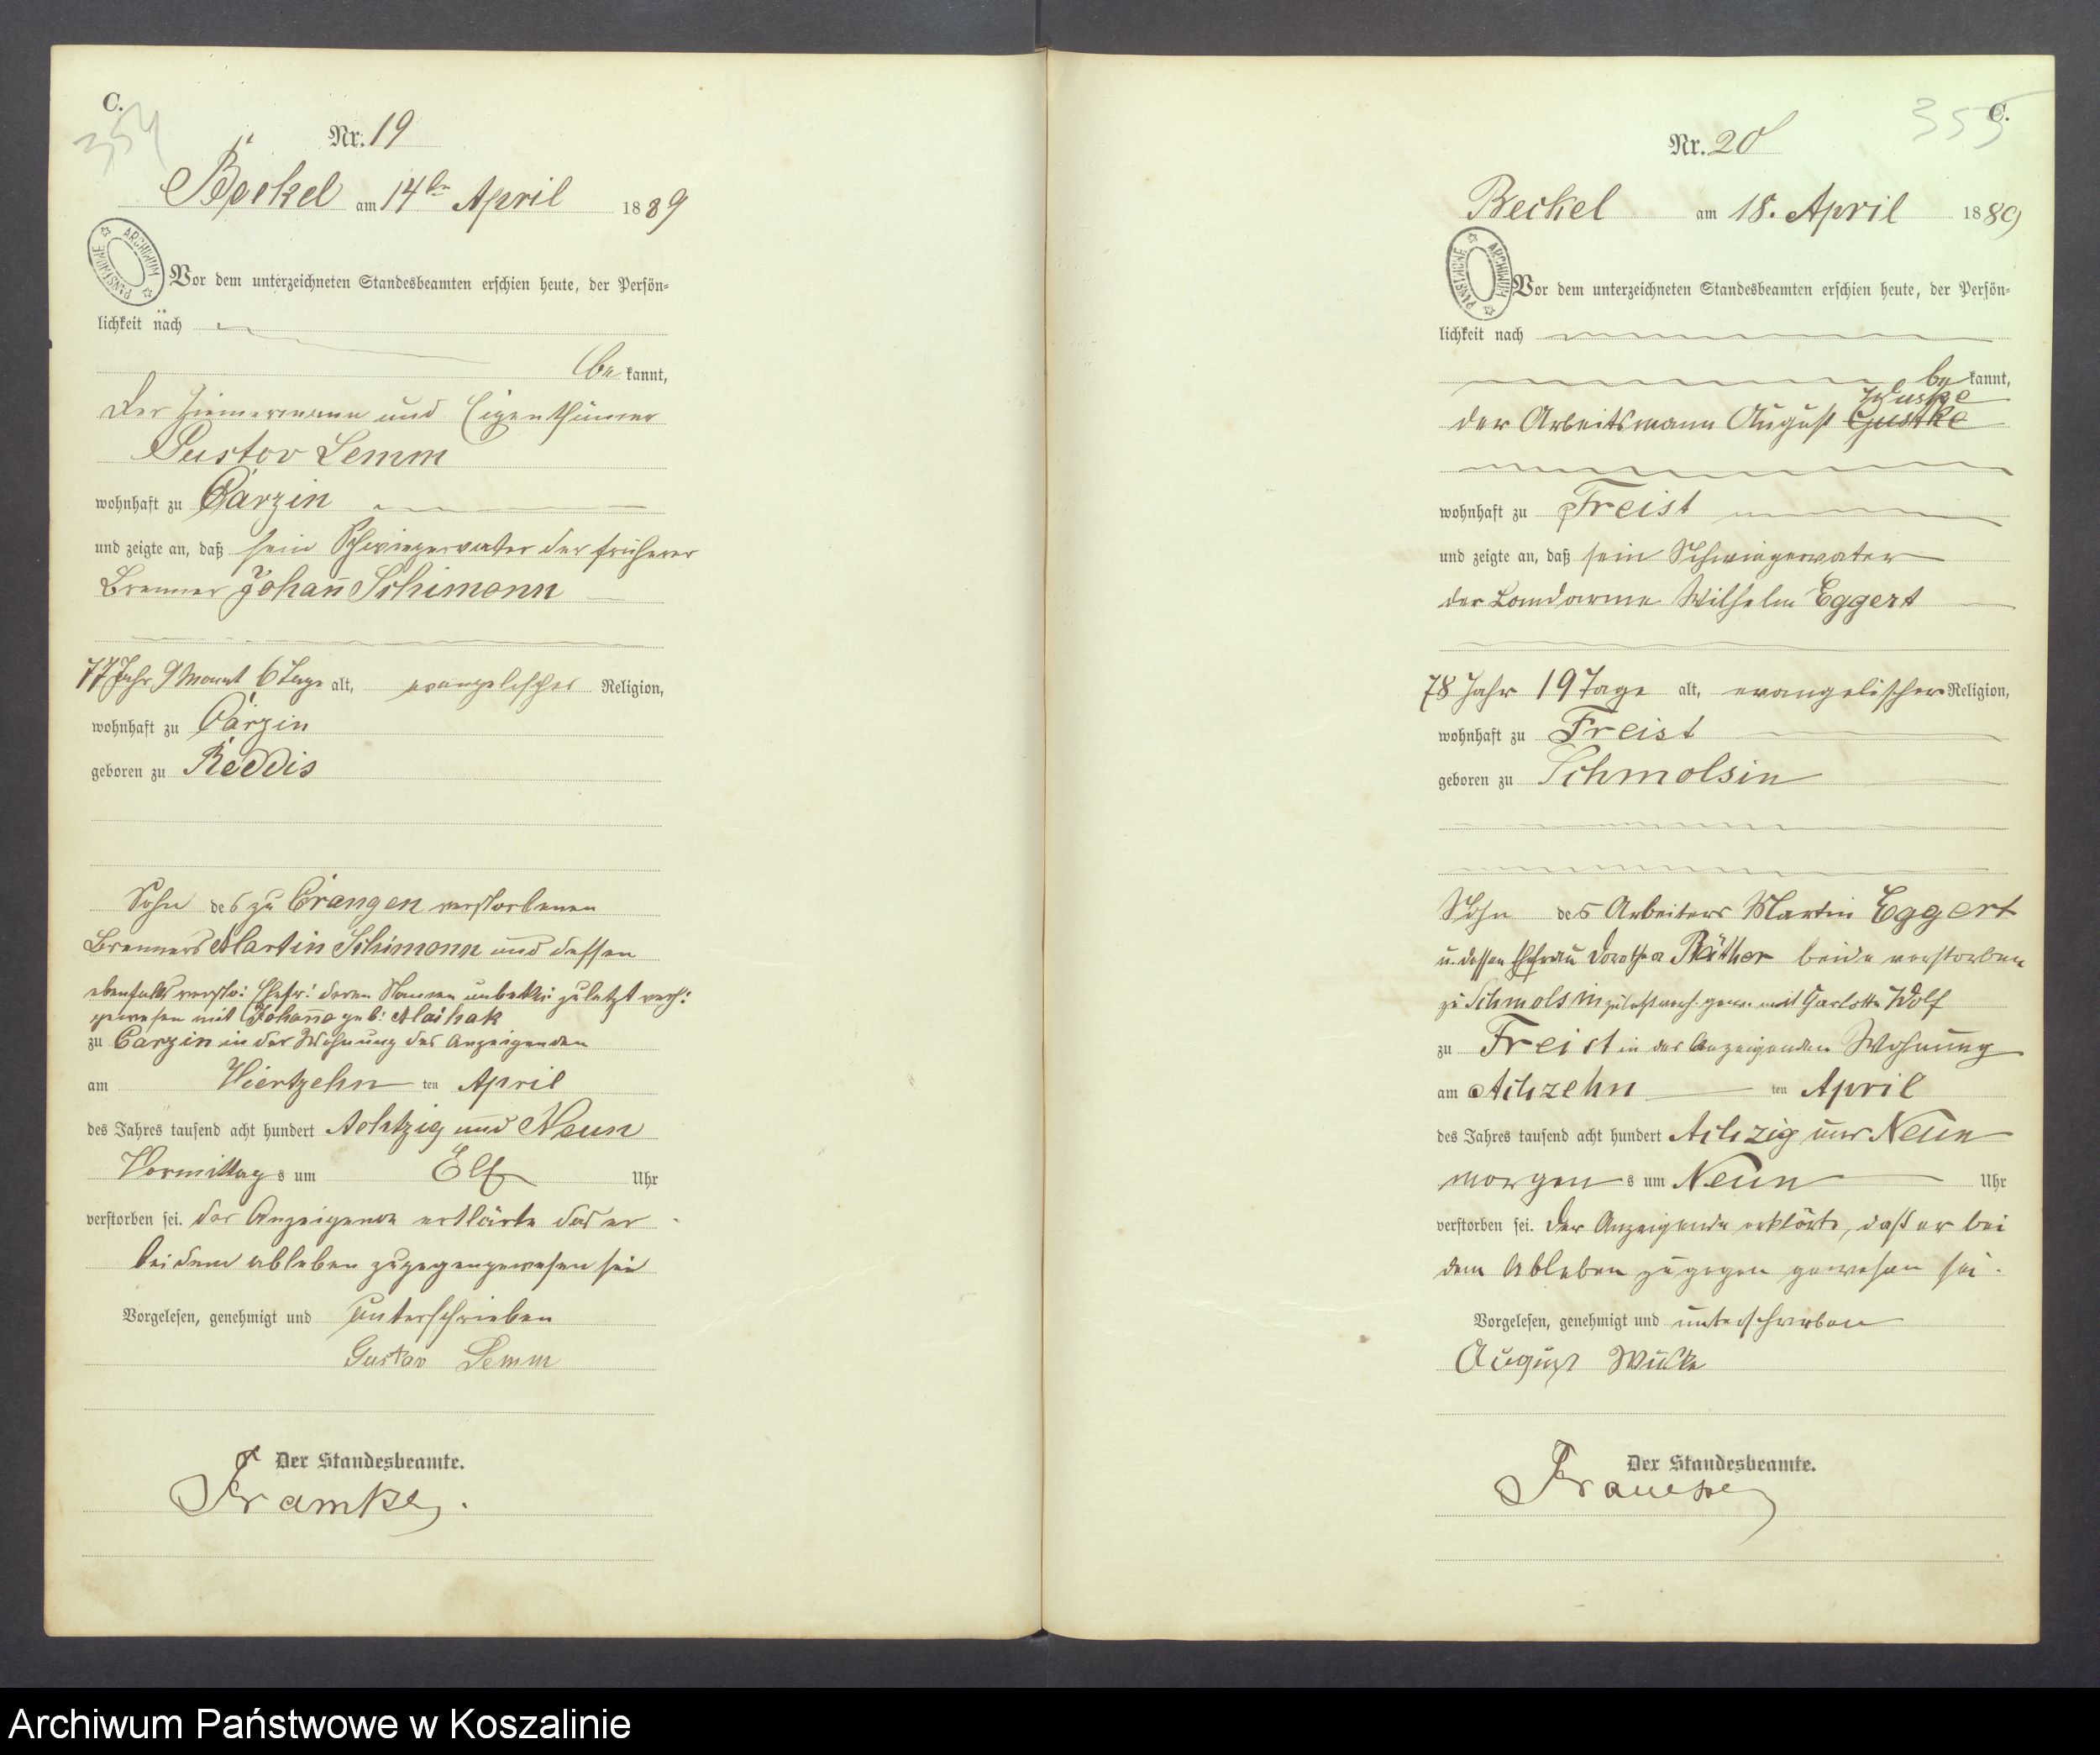 C.
354
Nr. 19
Beckel am 14ten April 1889
ARCHIWUM PAŃSTWOWE
Vor dem unterzeichneten Standesbeamten erschien heute, der Persön-
lichkeit nach
be kannt,
der Zimmermann und Eigenthümer
Gustav Lemm
wohnhaft zu Carzin
und zeigte an, daß sein Schwiegervater der früherer
Brenner Johann̄ Schimann
77 Jahr 9 Monat 6 Tage alt, evangelischer Religion,
wohnhaft zu Carzin
geboren zu Reddis
Sohn des zu Crangen verstorbenen
Brenners Martin Schimann und dessen
ebenfalls versto: Ehefr: deren Namen unbekt: zuletzt verh:
gewesen mit Johanna geb:
zu Carzin in der Wohnung des Anzeigenden
am Viertzehn ten April
des Jahres tausend acht hundert Achtzig und Neun
Vormittag s um Elf Uhr
verstorben sei. der Anzeigende erklärte das er
bei dem ableben zugegengewesen sei
Vorgelesen, genehmigt und unterschrieben
Gustav Lemm
Der Standesbeamte.
Framke.
C.
355
Nr. 20
Beckel am 18. April 1889
ARCHIWUM PAŃSTWOWE
Vor dem unterzeichneten Standesbeamten erschien heute, der Persön-
lichkeit nach
be kannt,
der Arbeitsmann August
wohnhaft zu Freist
und zeigte an, daß sein Schwiegervater
der Landarme Wilhelm Eggert
78 Jahr 19 Tage alt, evangelischer Religion,
wohnhaft zu Freist
geboren zu Schmolsin
Sohn des Arbeiters Martin Eggert
u. dessen Ehefrau Dorothea beide verstorben
zu Schmolsin zuletzt verh. gewe. mit Carlotte Wolf
zu Freist in des Anzeigenden Wohnung
am Achzehn ten April
des Jahres tausend acht hundert Achzig und Neun
morgen s um Neun Uhr
verstorben sei. Der Anzeigende erklärte, daß er bei
dem Ableben zugegen gewesen sei.
Vorgelesen, genehmigt und unterschrieben
August
Der Standesbeamte.
Framke
Archiwum Państwowe w Koszalinie